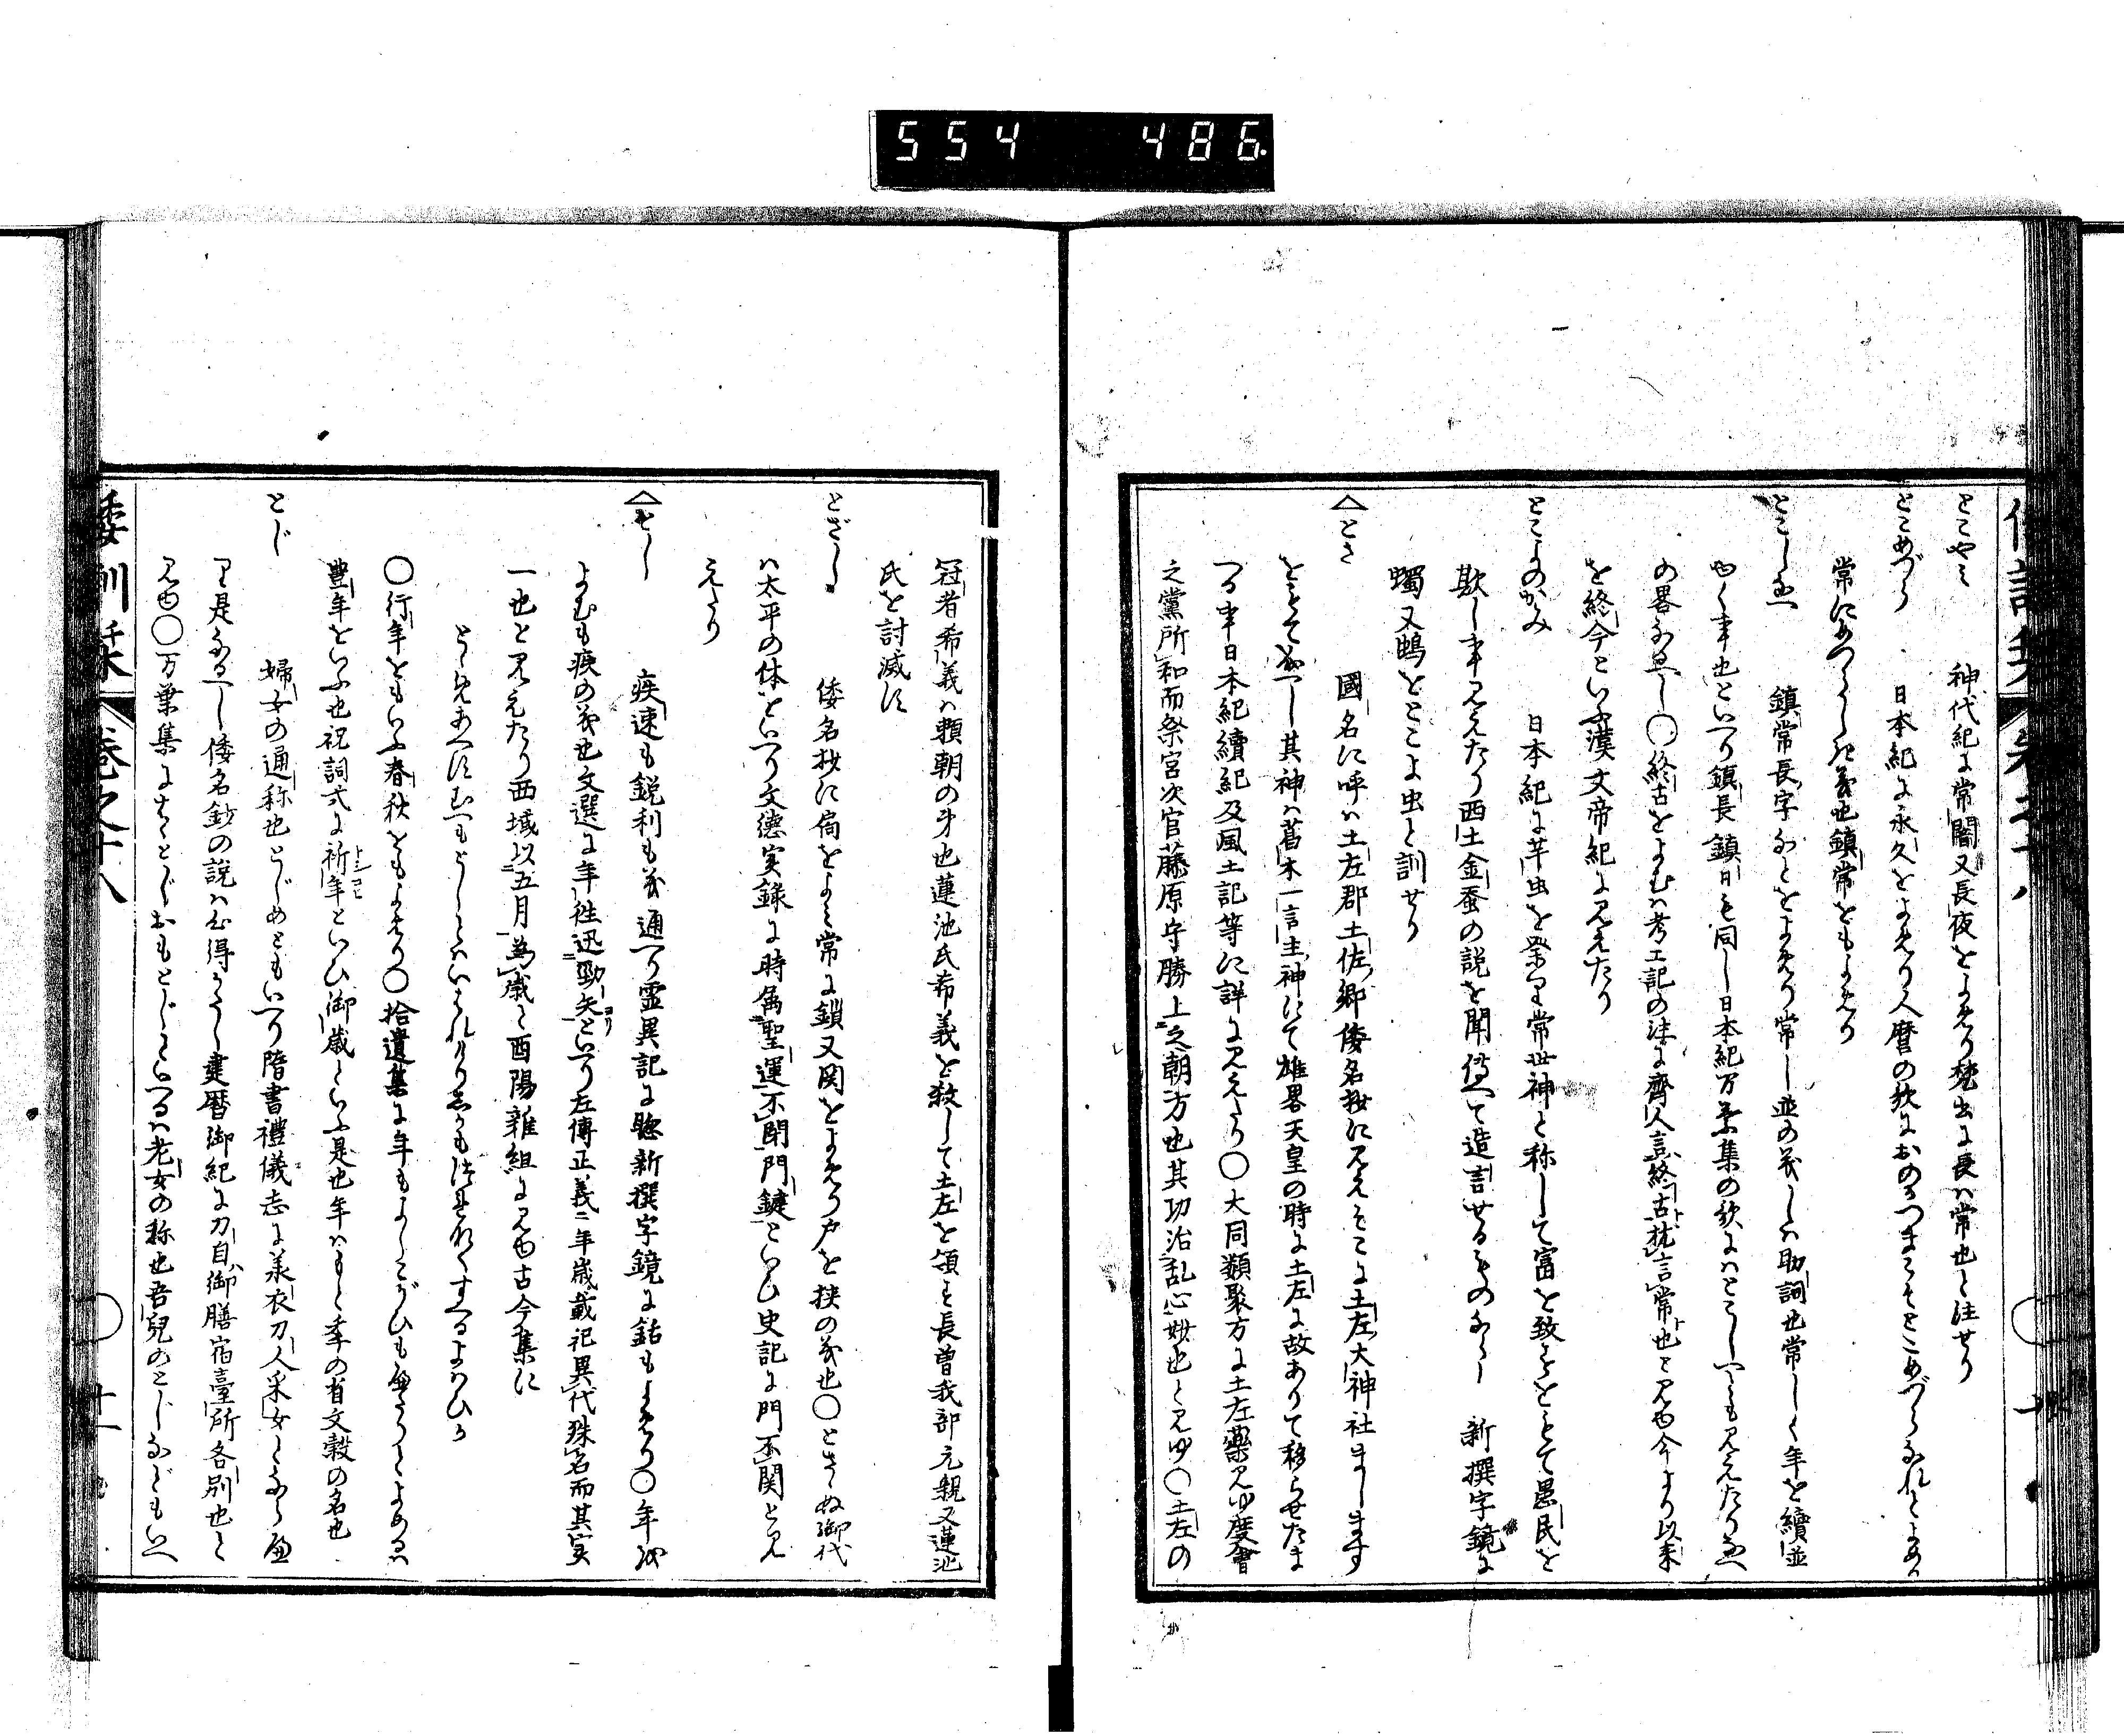 554 486
とこやみ 神代紀に常闇又長夜をよめり梵書に長ハ常也と注せり
とこめづら 日本紀に永久をよめり人麿の歌におのがつまこそとこめづらなれとよめり
常にめづらしき義也鎮常をもよめり
とこしなへ 鎮常長字などをよめり常し並の義しハ助詞也常しく年を續並
ゆく事也といへり鎮長鎮日も同し日本紀万葉集の歌にハとこしへとも見えたりなへ
の畧なるへし〇終古をよむハ考工記の注に齊人言終古猶言常也と見ゆ今より以来
を終今といふ漢文帝紀に見えたり
とこよのかみ 日本紀に芋虫を祭りて常世神と称して富を致すをとて愚民を
欺し事見えたり西土金蚕の説を聞傳へて造言せるものならし 新撰字鏡に
蠋又䗁をとこよ虫と訓せり
△とさ 國名に呼ハ土左郡土佐郷倭名抄に見えそこに土左大神社まします
をもてなるへし其神ハ葛木一言主神にて雄畧天皇の時に土左に故ありて移らせたま
へる事日本紀續紀及風土記等に詳に見えたり〇大同類聚方に土左藥見ゆ度會
之黨所和而祭宮次官藤原守勝上之朝方也其功治乱心妙也と見ゆ〇土左の
冠者希義ハ頼朝の弟也蓮池氏希義を殺して土左を領す長曽我部元親又蓮池
氏を討滅す
とざし 倭名抄に扃をよみ常に鎖又関をよめり戸を挟の義也〇とざゝぬ御代
ハ太平の体をいへり文徳実録に時属聖運不閉門鍵といひ史記に門不関と見
えたり
△とし 疾速も鋭利も義通へり霊異記に聡新撰字鏡に銛もよめり〇年歳
よむも疾の義也文選に年往迅勁矢といへり左傳正義ニ年歳載祀異代殊名而其実
一也と見えたり西域以五月為歳と酉陽雑組に見ゆ古今集に
とゝめあへすむへもとしとハいはれけりしかもつれなくすくるよハひか
〇行年をもいふ春秋をもよめり〇拾遺集に年もよしこがひも得たりとよめるハ
豊年をいふ也祝詞式に祈年といひ御歳といふ是也年ハもと季の省文穀の名也
とじ 婦女の通称也とうじめともいへり隋書禮儀志に美衣刀人采女とならへ
り是なるへし倭名鈔の説ハ心得かたし建暦御紀に刀自御膳宿臺所各別也と
見ゆ〇万葉集にはゝとじおもとじといへるハ老女の称也吾兒のとじなどもいへ
倭訓栞 巻之十八 〇 十一